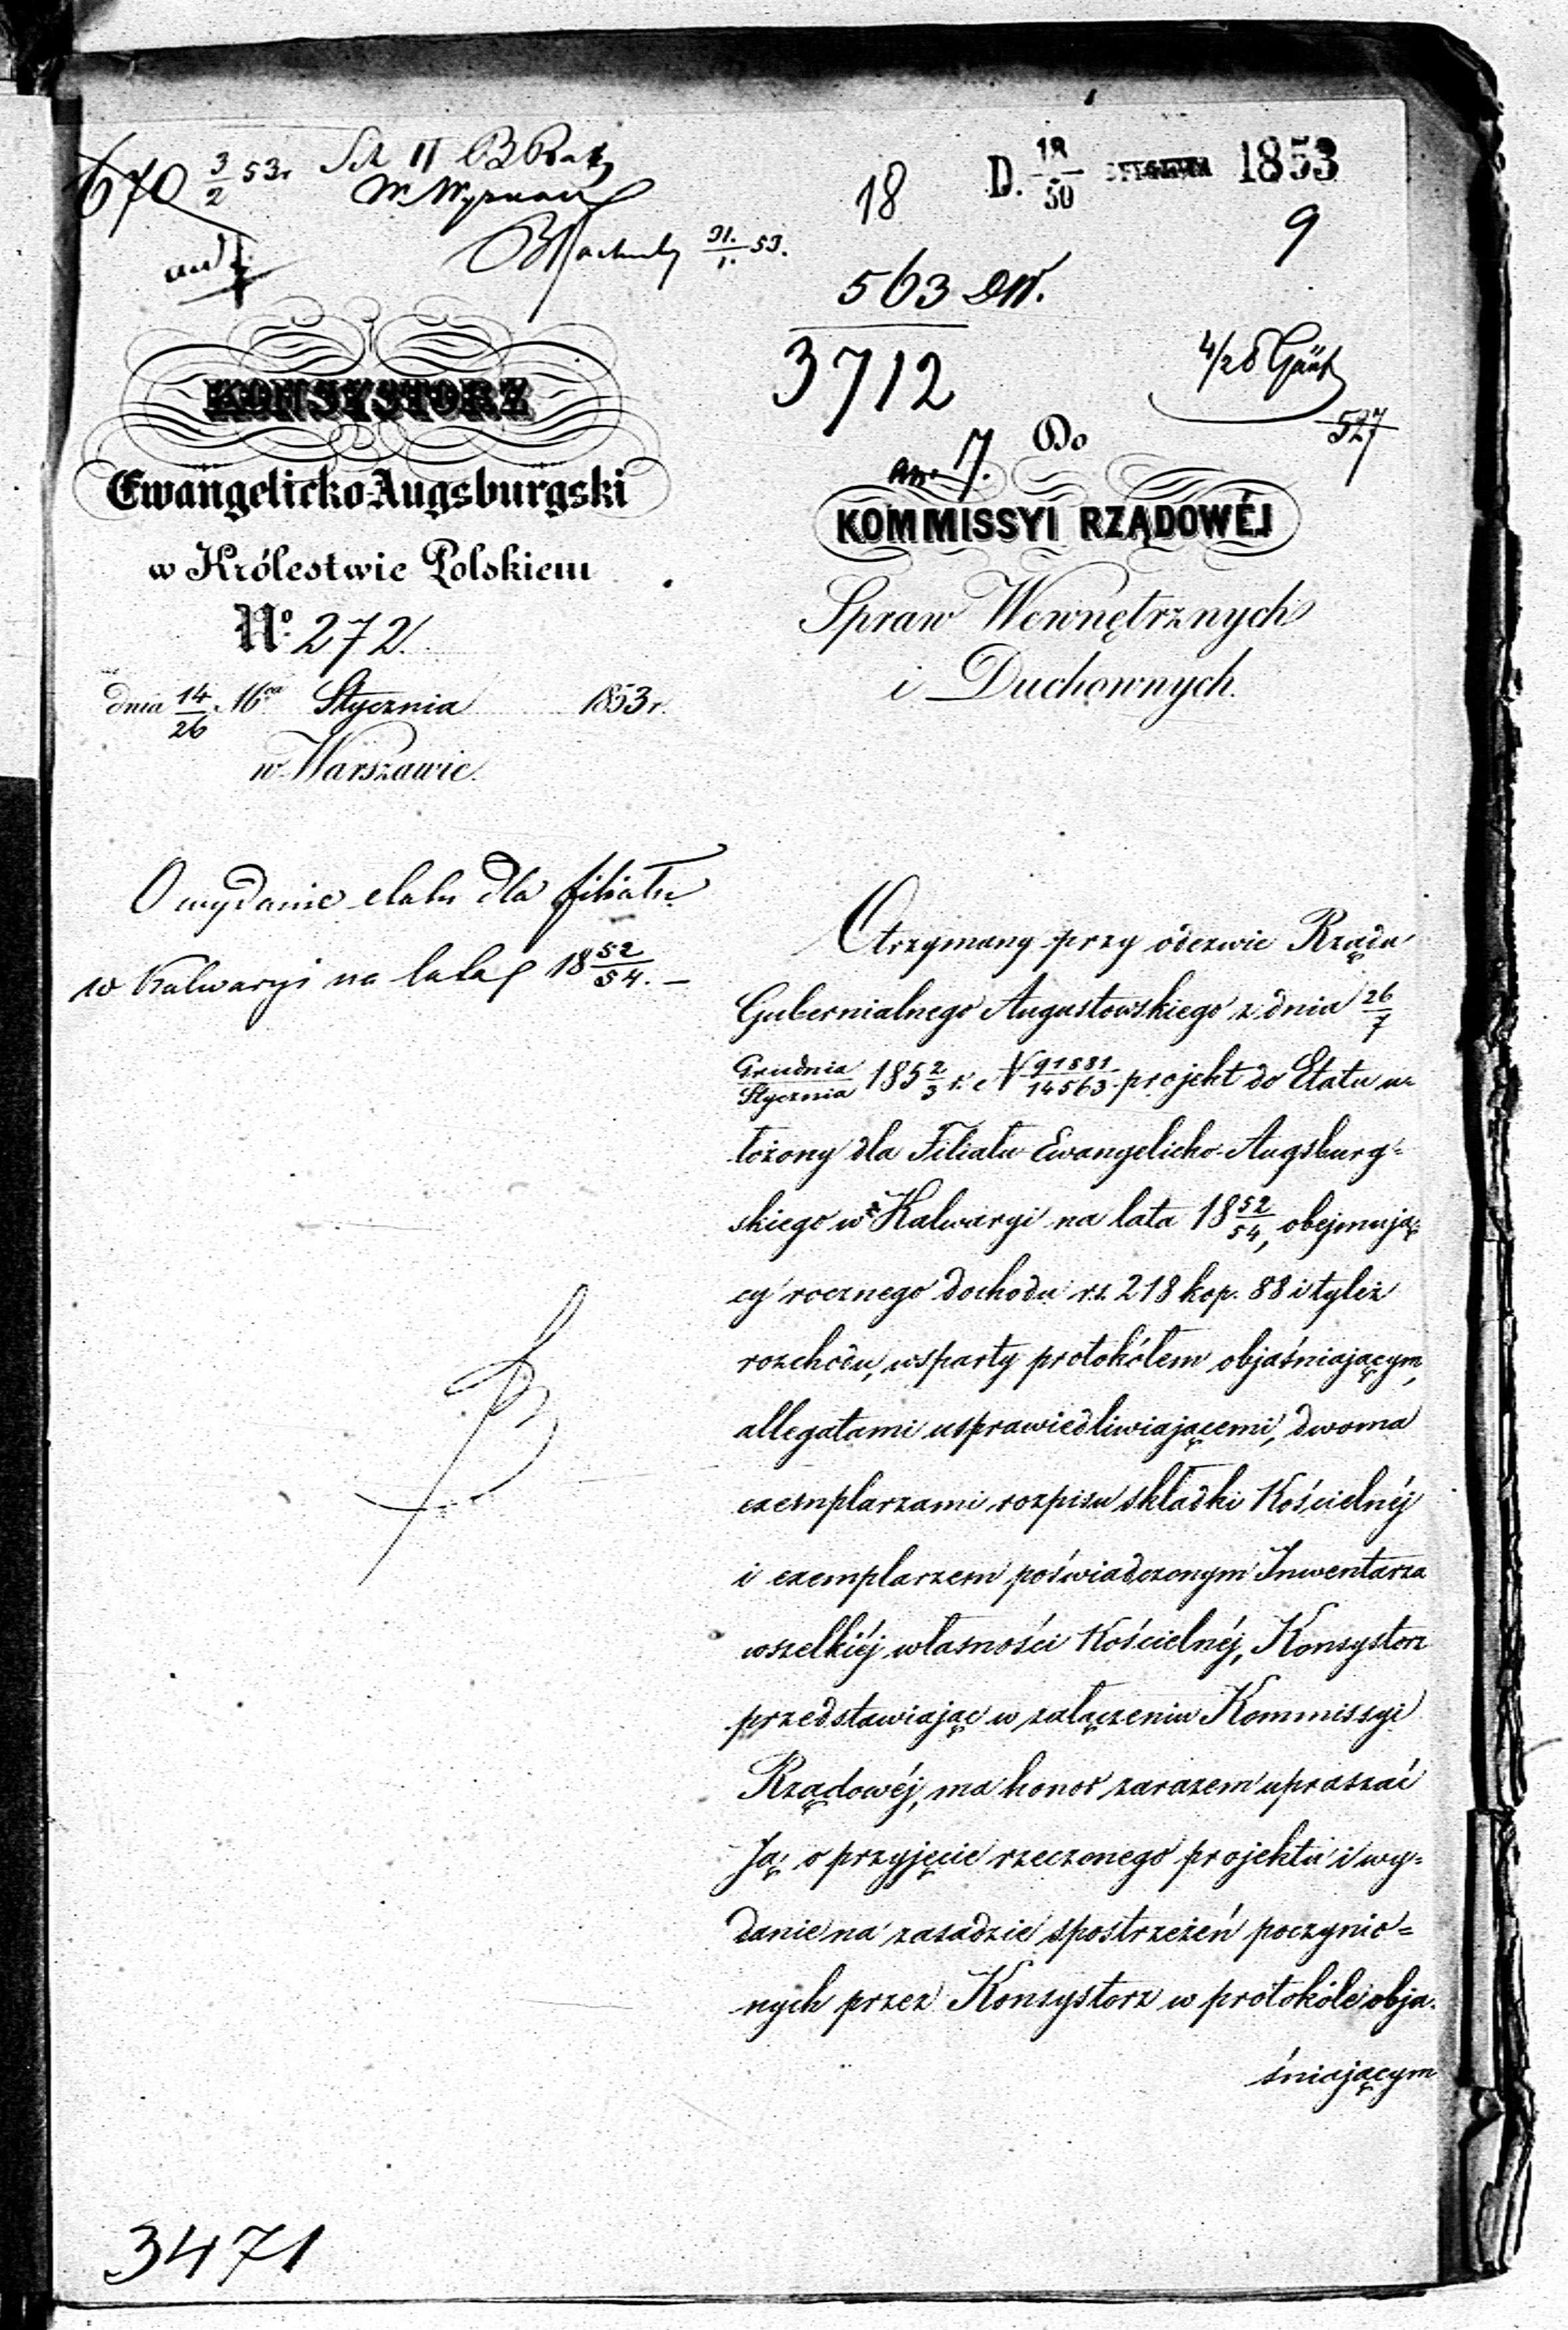 670 3/2 53r.
18
D. 18/30 1853
9
31./1. 53.
563
3712
4/2
527
KONSYSTORZ
Ewangelicko-Augsburgski
w Królestwie Polskiem
No. 272.
dnia 14/26 Mca Stycznia 1853 r.
w Warszawie.
7. Do
KOMMISSYI RZĄDOWÉJ
Spraw Wewnętrznych
i Duchownych.
O wydanie etatu dla filiału
w Kalwaryi na lata 18 52/54. –
Otrzymany przy odezwie Rządu
Gubernialnego Augustowskiego z dnia 26/7
Grudnia/Stycznia 185 2/3 r. N 91581/14563 projekt do Etatu u=
łożony dla Filiału Ewangelicko-Augsburg=
skiego w Kalwaryi na lata 18 52/54, obejmują=
cy rocznego dochodu rs. 218 kop. 88 i tyleż
rozchodu, wsparty protokółem objaśniającym,
allegatami usprawiedliwiającemi, dwoma
exemplarzami rozpisu składki Kościelnéj
i exemplarzem poświadczonym Inwentarza
wszelkiéj własności Kościelnéj, Konsystorz
przedstawiając w załączeniu Kommissyi
Rządowéj, ma honor zarazem upraszać
Ją, o przyjęcie rzeczonego projektu i wy=
danie na zasadzie spostrzeżeń poczynio=
nych przez Konsystorz w protokóle obja=
śniającym
3471